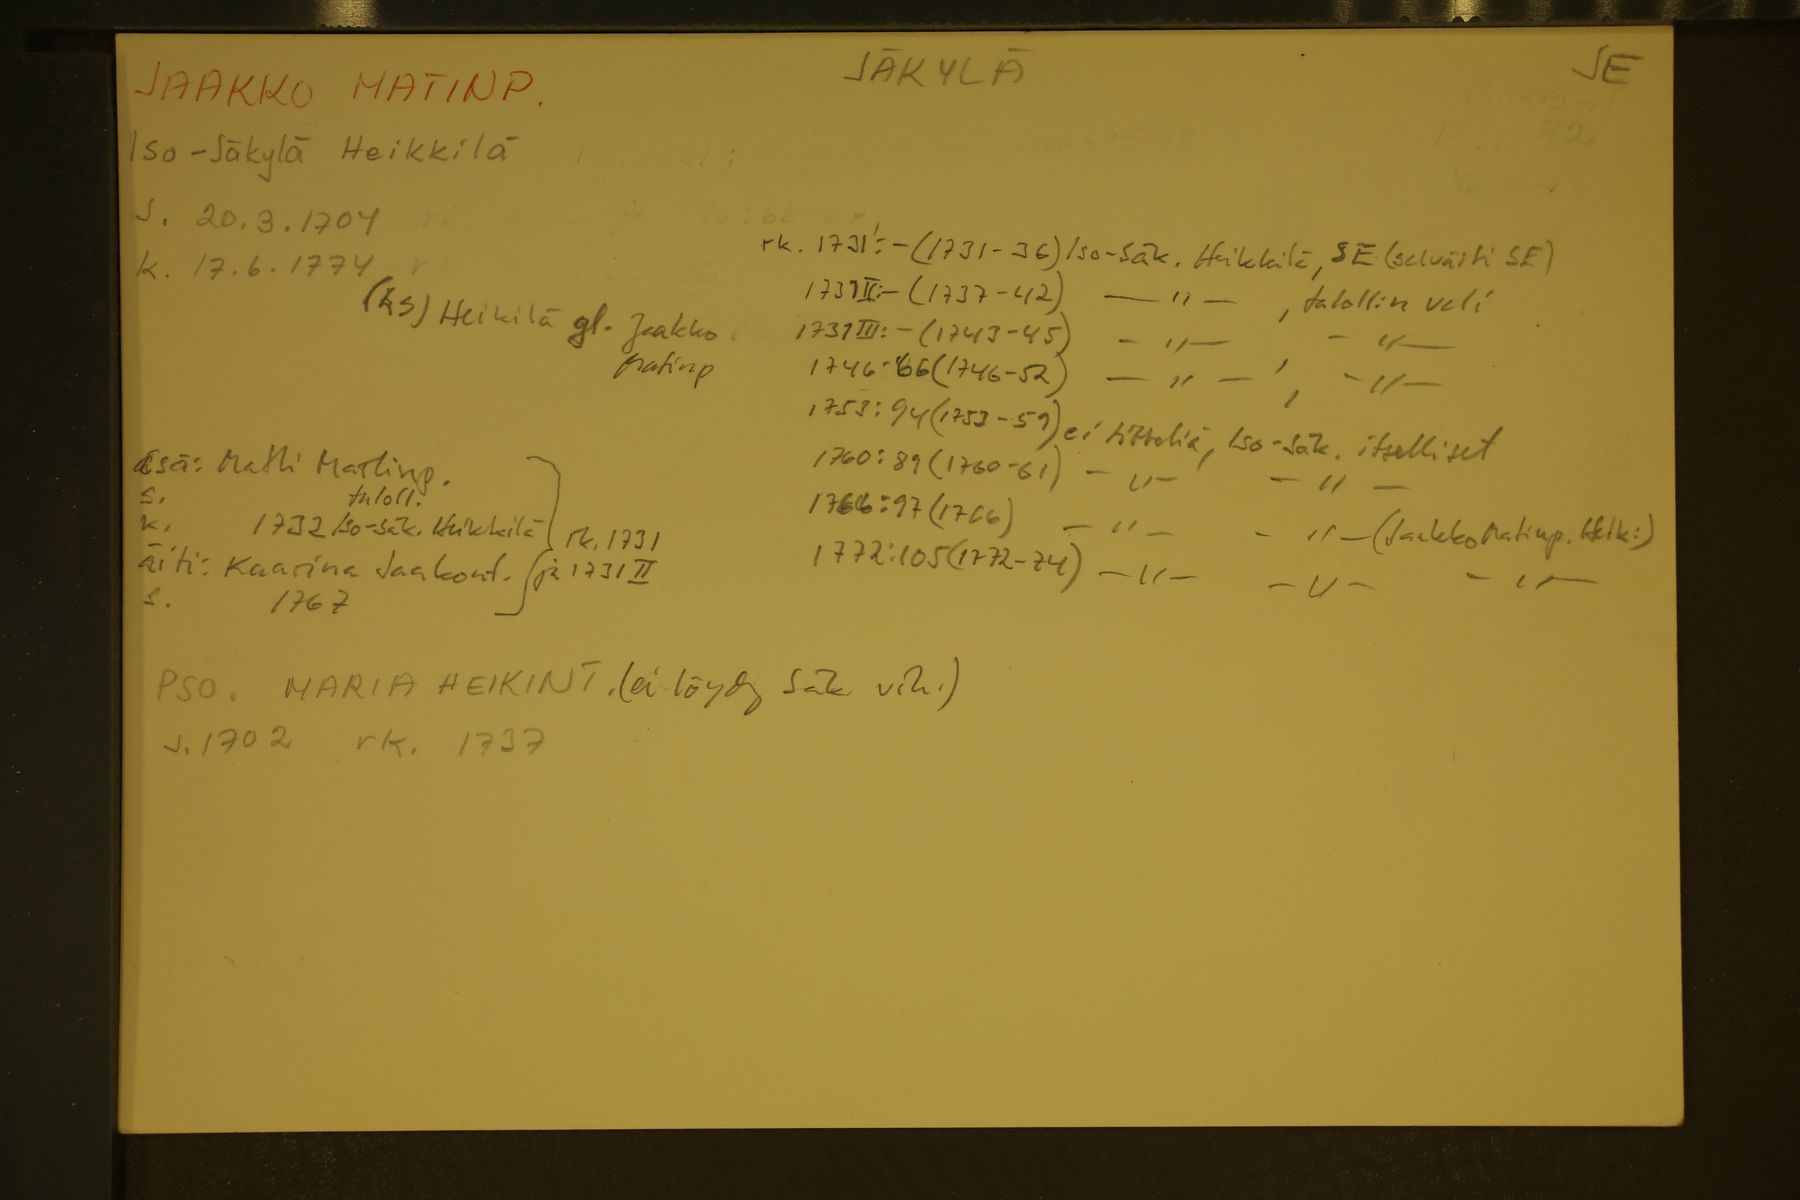 JAAKKO MATINP.
SÄKYLÄ
SE
Iso-Säkylä Heikkilä
s. 20.3.1704
k. 17.6.1774
(ks) Heikilä gl. Jaakko
Matinp
rk. 1731: - (1731-36) Iso-Säk. Heikkilä, SE (selvästi SE)
1731 II: - (1737-42) — " — , talollin veli
1731 III: - (1743-45) — " — — " —
1746: 66 (1746-52) — " — , — " —
1753: 94 (1753-59) ei titteliä, Iso-Säk. itselliset
1760: 89 (1760-61) — " — — " —
1766: 97 (1766) — " — — " — (Jaakko Matinp. Heik:)
1772: 105 (1772-74) — " — — " — — " —
isä: Matti Martinp.
s. taloll.
k. 1732 Iso-Säk. Heikkilä
äiti: Kaarina Jaakont.
s. 1767
rk. 1731
ja 1731 II
PSO. MARIA HEIKINT. (ei löydy Säk. vih.)
s. 1702 rk. 1737